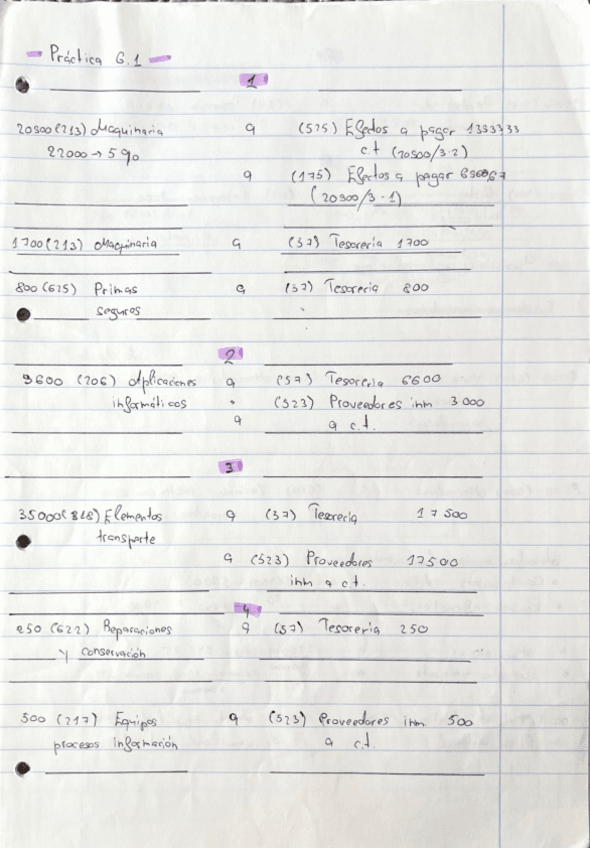 Práctica 6.1
1
20900 (213) Maquinaria a (525) Efectos a pagar 1393333
22000 → 5% c.t (20900/3·2)
a (175) Efectos a pagar 696667
(20900/3·1)
1700 (213) Maquinaria a (57) Tesorería 1700
800 (625) Primas a (57) Tesorería 800
seguros
2
9600 (206) Aplicaciones a (57) Tesorería 6600
informáticos (523) Proveedores inm 3000
a a c.t.
3
35000 (218) Elementos a (57) Tesorería 17500
transporte
a (523) Proveedores 17500
inm a c.t.
4
250 (622) Reparaciones a (57) Tesorería 250
y conservación
500 (217) Equipos a (523) Proveedores inm 500
procesos información a c.t.